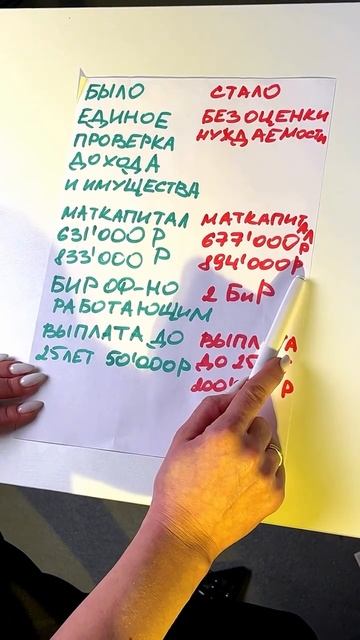 БЫЛО
ЕДИНОЕ
ПРОВЕРКА
ДОХОДА
И ИМУЩЕСТВА
МАТКАПИТАЛ
631'000 Р
833'000 Р
БИР ОФ-НО
РАБОТАЮЩИМ
ВЫПЛАТА ДО
25ЛЕТ 50'000Р
СТАЛО
БЕЗ ОЦЕНКИ
НУЖДАЕМОСТИ
МАТКАПИТАЛ
677'000Р
894'000Р
2 БиР
ДО 25